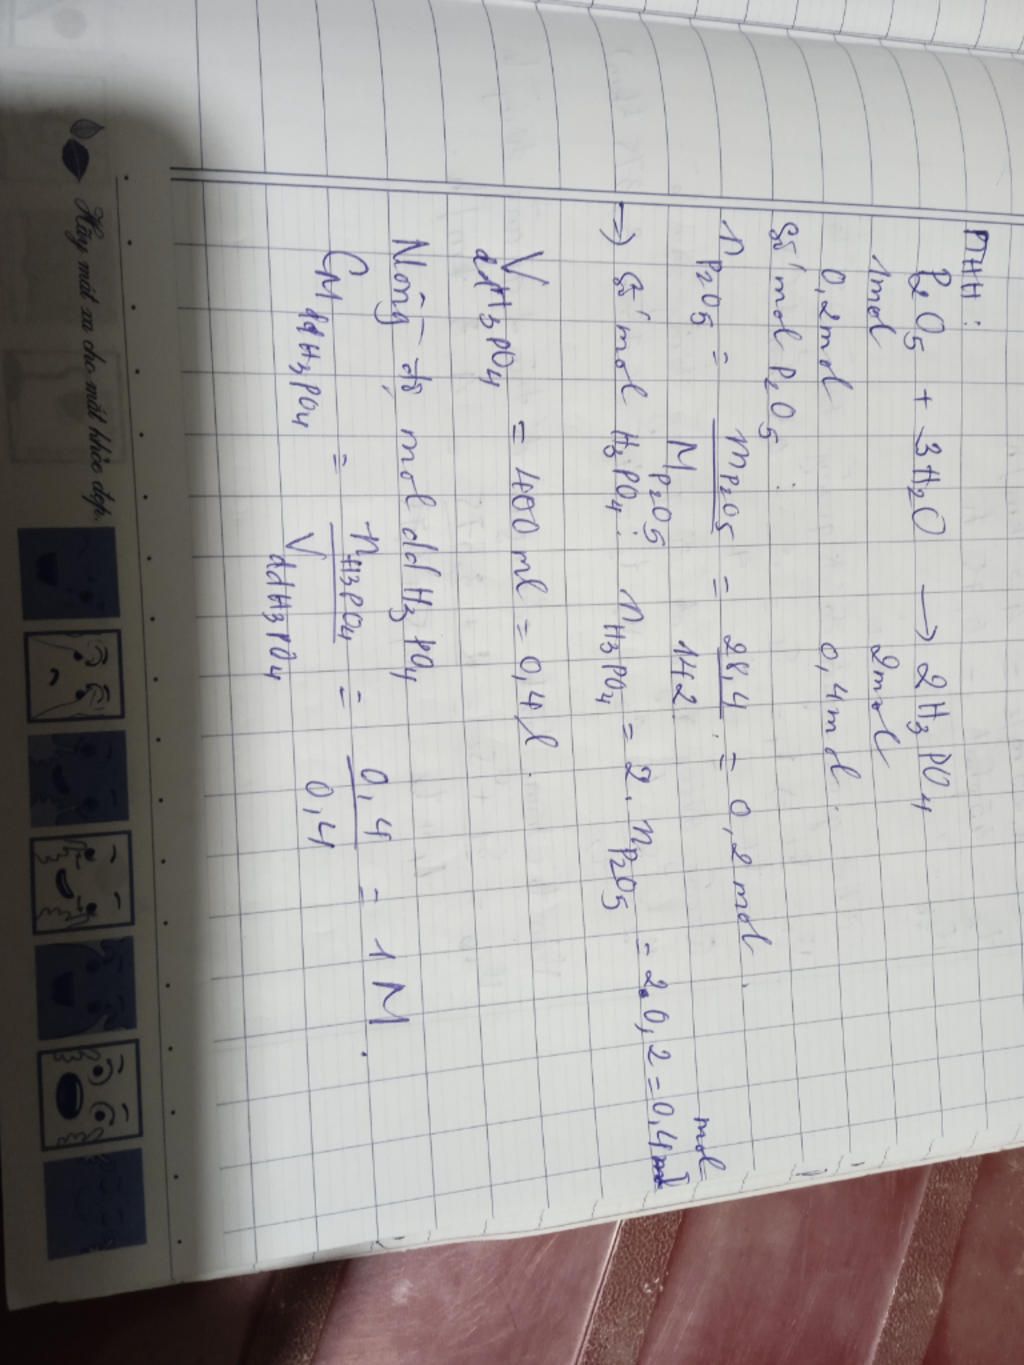 PTHH:
P2O5 + 3H2O → 2H3PO4
1mol 2mol
0,2mol 0,4mol.
Số mol P2O5:
nP2O5 = mP2O5 / MP2O5 = 28,4 / 142 = 0,2 mol.
→ Số mol H3PO4: nH3PO4 = 2. nP2O5 = 2.0,2 = 0,4 mol
VddH3PO4 = 400 ml = 0,4 l.
Nồng độ mol dd H3PO4
CM ddH3PO4 = nH3PO4 / VddH3PO4 = 0,4 / 0,4 = 1 M.
Hãy mát xa cho mắt khỏe đẹp.